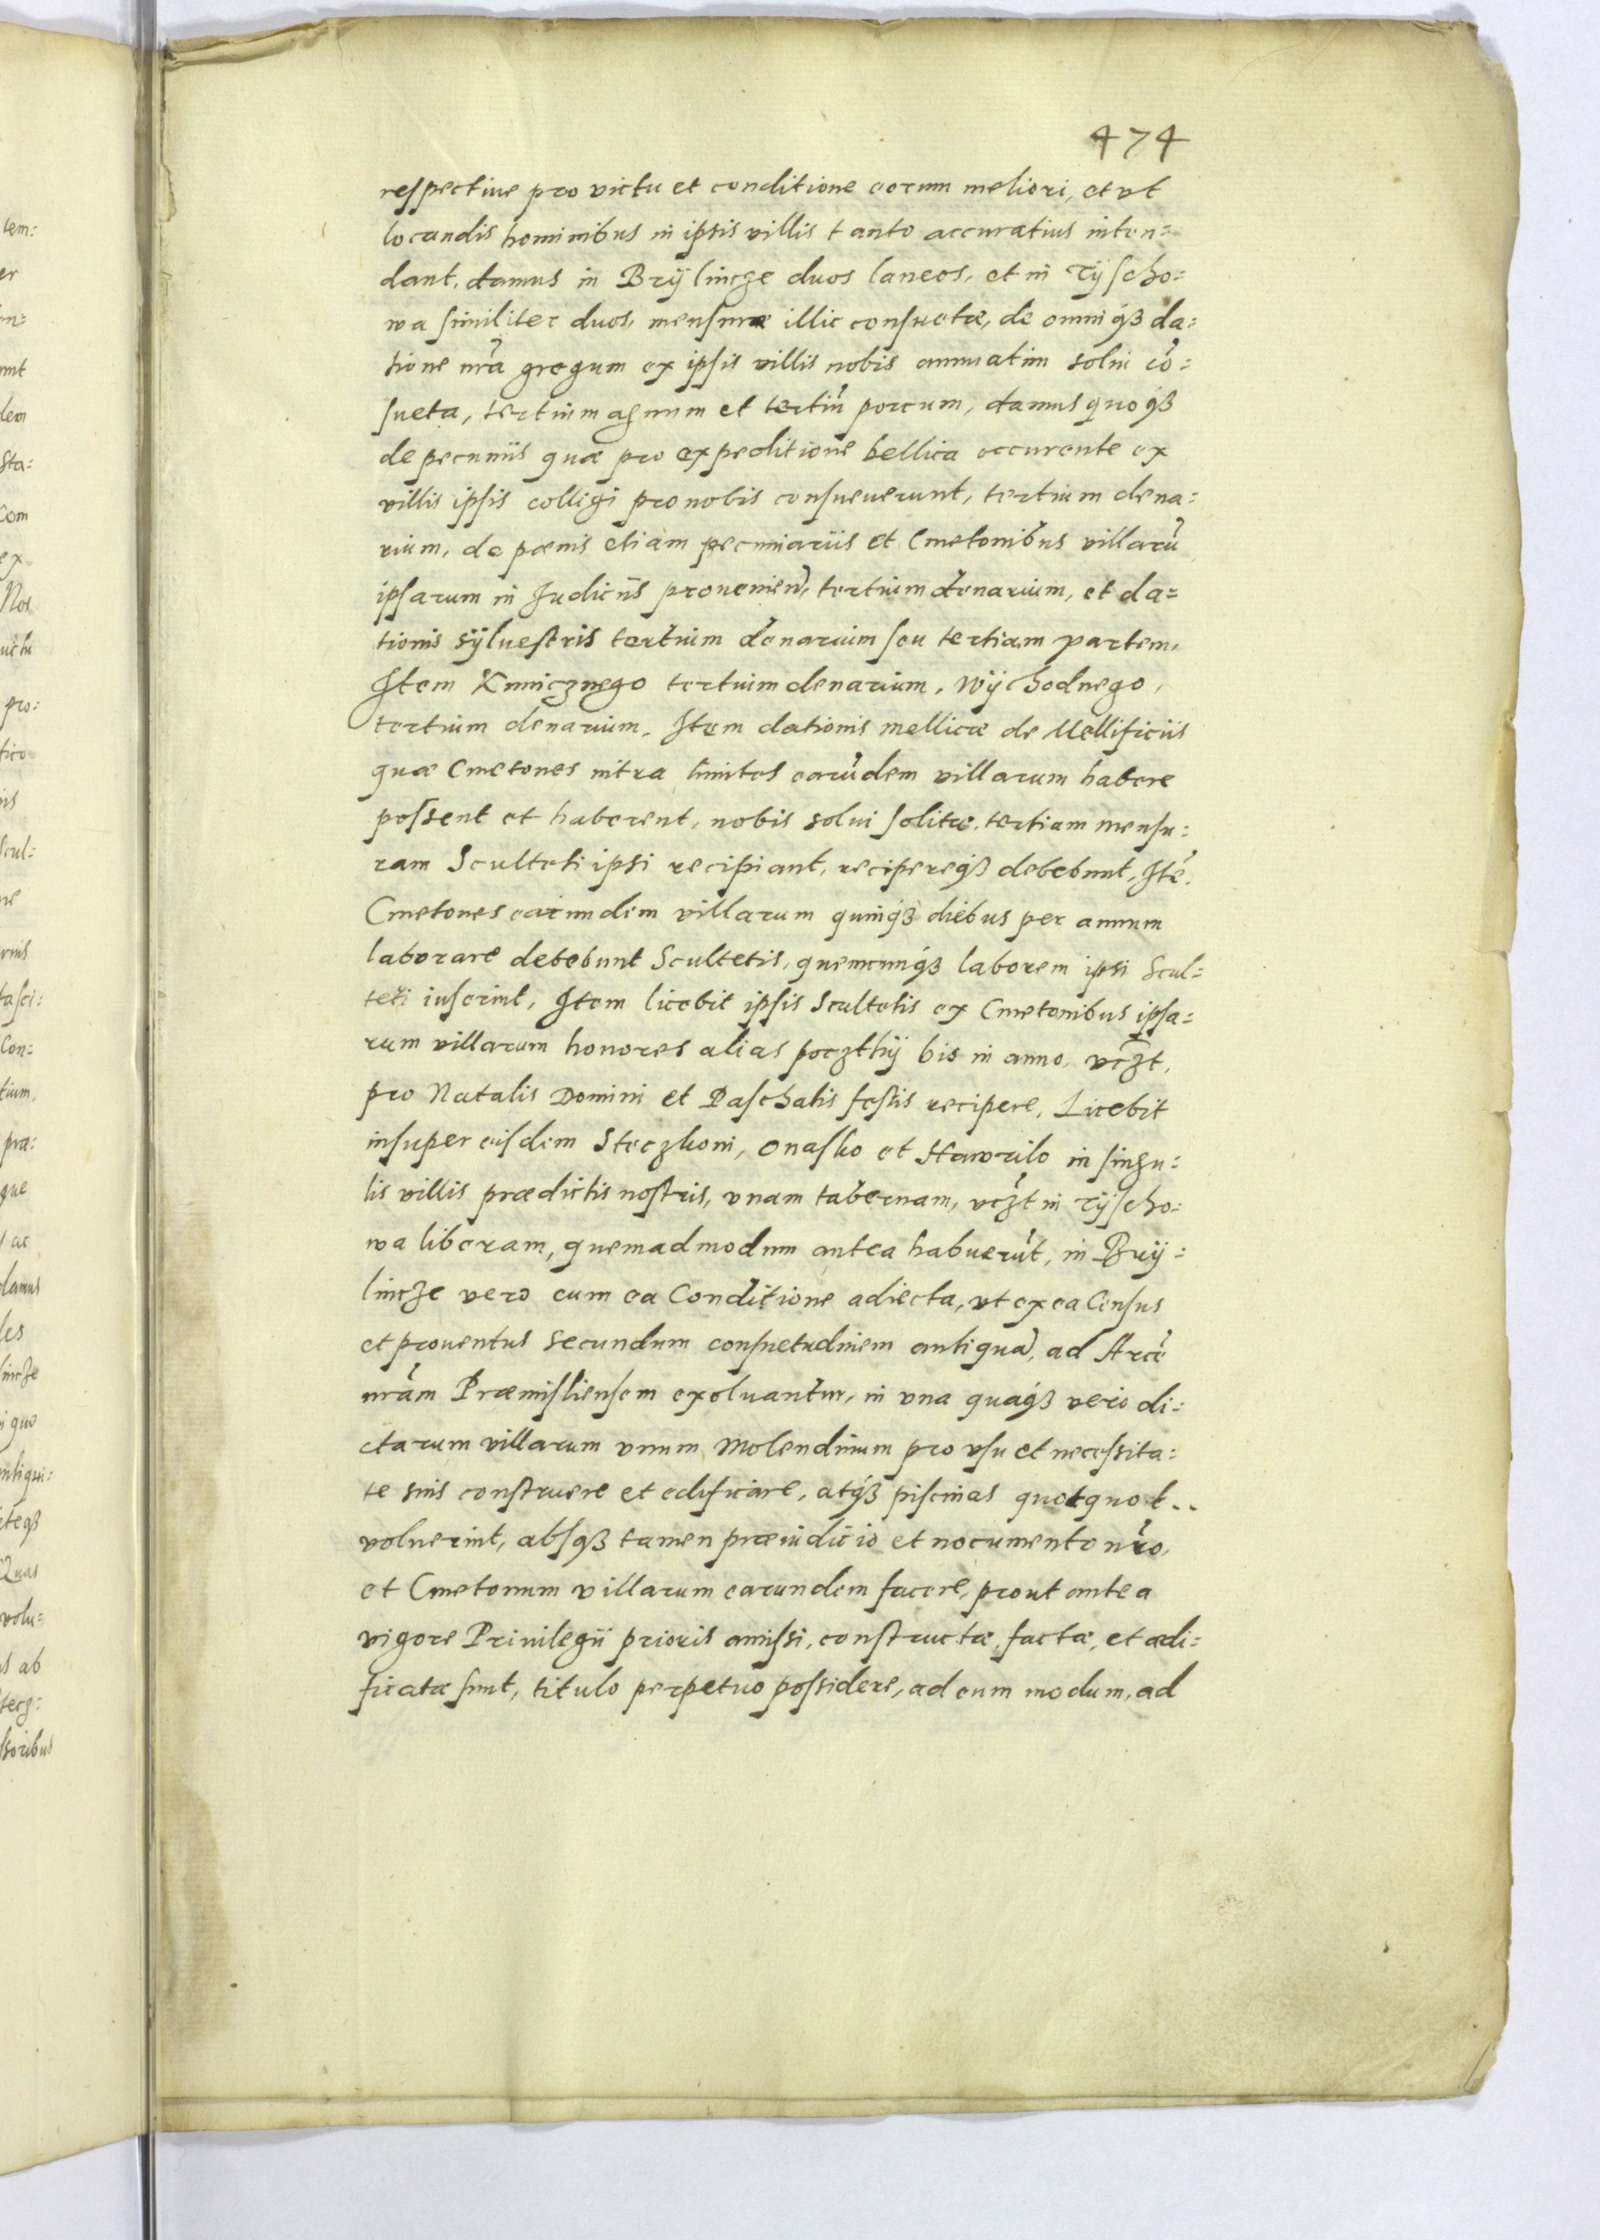 474
respectiue pro victu et conditione eorum meliori, et vt
locandis hominibus in ipsis villis tanto accuratius inten=
dant, damus in Brÿlincze duos laneos, et in Tÿscho=
wa similiter duos, mensuræ illic consuetæ, de omniq3 da=
tione nrã gregum ex ipsis villis nobis annuatim solui cõ=
sueta, tertium agnum et tertiũ porcum, damus quoq3
de pecuniis quæ pro expeditione bellica occurente ex
villis ipsis colligi pro nobis consueuerunt, tertium dena=
rium, de pœnis etiam pecuniariis et Cmetonibus villarũ
ipsarum in Judiciis prouenien̄, tertium denarium, et da=
tionis sÿluestris tertium denarium seu tertiam partem,
Item Kunicznego tertium denarium, Wÿchodnego,
tertium denarium. Item dationis mellicæ de Mellificiis
quæ Cmetones intra limites earũdem villarum habere
possent et haberent, nobis solui solitæ, tertiam mensu=
ram Sculteti ipsi recipiant, recipereq3 debebunt, Itẽ.
Cmetones earundem villarum quinq3 diebus per annum
laborare debebunt Scultetis, quemcunq3 laborem ipsi Scul=
teti iuserint, Item licebit ipsis Scultetis ex Cmetonibus ipsa=
rum villarum honores alias poczthÿ bis in anno, vcz̃t,
pro Natalis Domini et Paschalis festis recipere, Licebit
insuper eisdem Steczkoni, Onasko et Hawrilo in singu=
lis villis prædictis nostris, vnam tabernam, vcz̃t in Tÿscho=
wa liberam, quemadmodum antea habuerũt, in Brÿ=
lincze vero cum ea Conditione adiecta, vt ex ea Census
et prouentus secundum consuetudinem antiquã, ad Arcẽ
nrãm Præmisliensem exoluantur, in vna quaq3 vero di=
ctarum villarum vnum Molendinum pro vsu et necessita=
te suis construere et edificare, atq3 piscinas quotquot..
voluerint, absq3 tamen præiudicio et nocumento nrõ,
et Cmetonum villarum earundem facere, prout antea
vigore Priuilegii prioris amissi, constructæ, factæ, et ædi=
ficatæ sunt, titulo perpetuo possidere, ad eum modum, ad